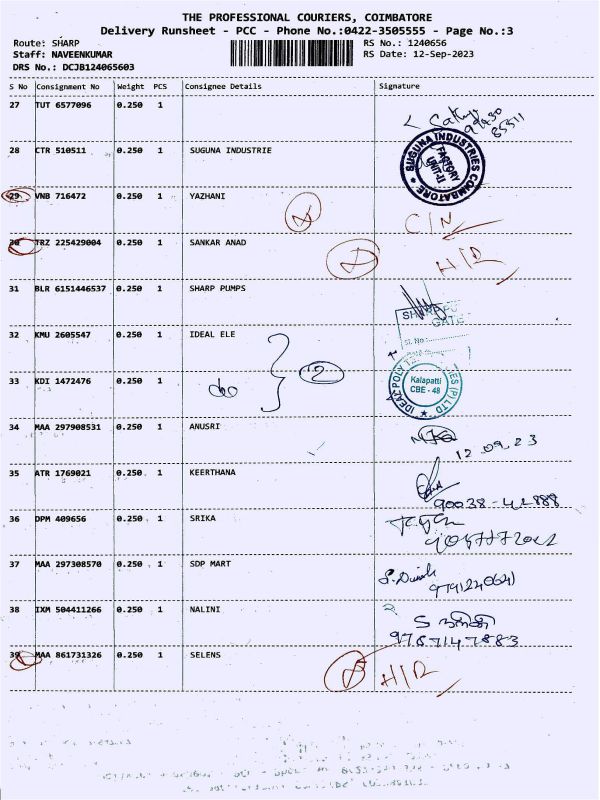 THE PROFESSIONAL COURIERS, COIMBATORE
Delivery Runsheet - PCC - Phone No.:0422-3505555 - Page No.:3
Route: SHARP RS No.: 1240656
Staff: NAVEENKUMAR RS Date: 12-Sep-2023
DRS No.: DCJB124065603
S No Consignment No Weight PCS Consignee Details Signature
27 TUT 6577096 0.250 1
28 CTR 510511 0.250 1 SUGUNA INDUSTRIE
SUGUNA INDUSTRIES
FACTORY
UNIT-II
COIMBATORE
29 VNB 716472 0.250 1 YAZHANI
C/N
30 TRZ 225429004 0.250 1 SANKAR ANAD
H/R
31 BLR 6151446537 0.250 1 SHARP PUMPS
GATE
Sl. No
32 KMU 2605547 0.250 1 IDEAL ELE
2
33 KDI 1472476 0.250 1 do
IDEAL POLY
(P) LTD
Kalapatti
CBE - 48
34 MAA 297908531 0.250 1 ANUSRI
12 09 23
35 ATR 1769021 0.250 1 KEERTHANA
90038-42888
36 DPM 409656 0.250 1 SRIKA
37 MAA 297308570 0.250 1 SDP MART
S. Dinesh
9791240641
38 IXM 504411266 0.250 1 NALINI
9787147883
39 MAA 861731326 0.250 1 SELENS
H/R